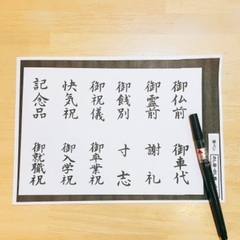 御仏前
御霊前
御餞別
御祝儀
快気祝
記念品
御車代
謝礼
寸志
御卒業祝
御入学祝
御就職祝